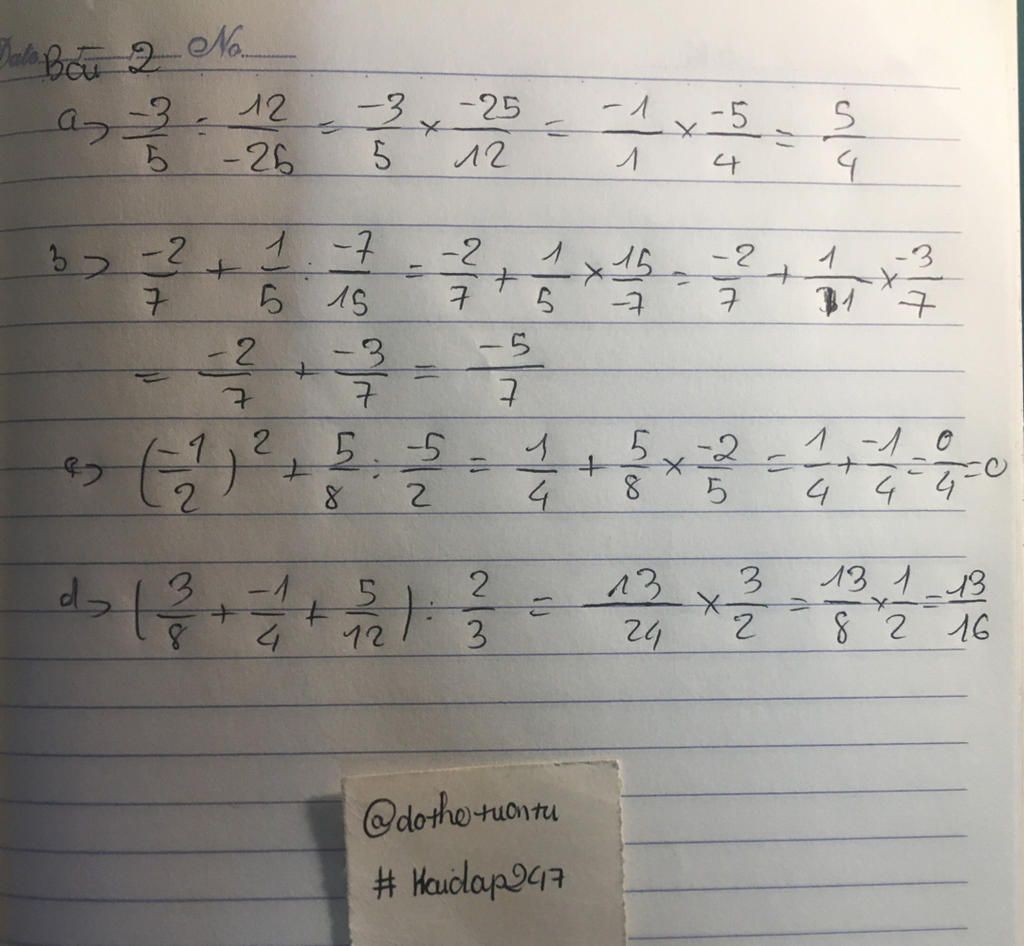 Date. No.
Bài 2
a> -3/5 : 12/-25 = -3/5 × -25/12 = -1/1 × -5/4 = 5/4
b> -2/7 + 1/5 : -7/15 = -2/7 + 1/5 × 15/-7 = -2/7 + 1/1 × -3/7
= -2/7 + -3/7 = -5/7
c> (-1/2)² + 5/8 : -5/2 = 1/4 + 5/8 × -2/5 = 1/4 + -1/4 = 0/4 = 0
d> (3/8 + -1/4 + 5/12) : 2/3 = 13/24 × 3/2 = 13/8 × 1/2 = 13/16
@dothetuantu
# Hoidap247